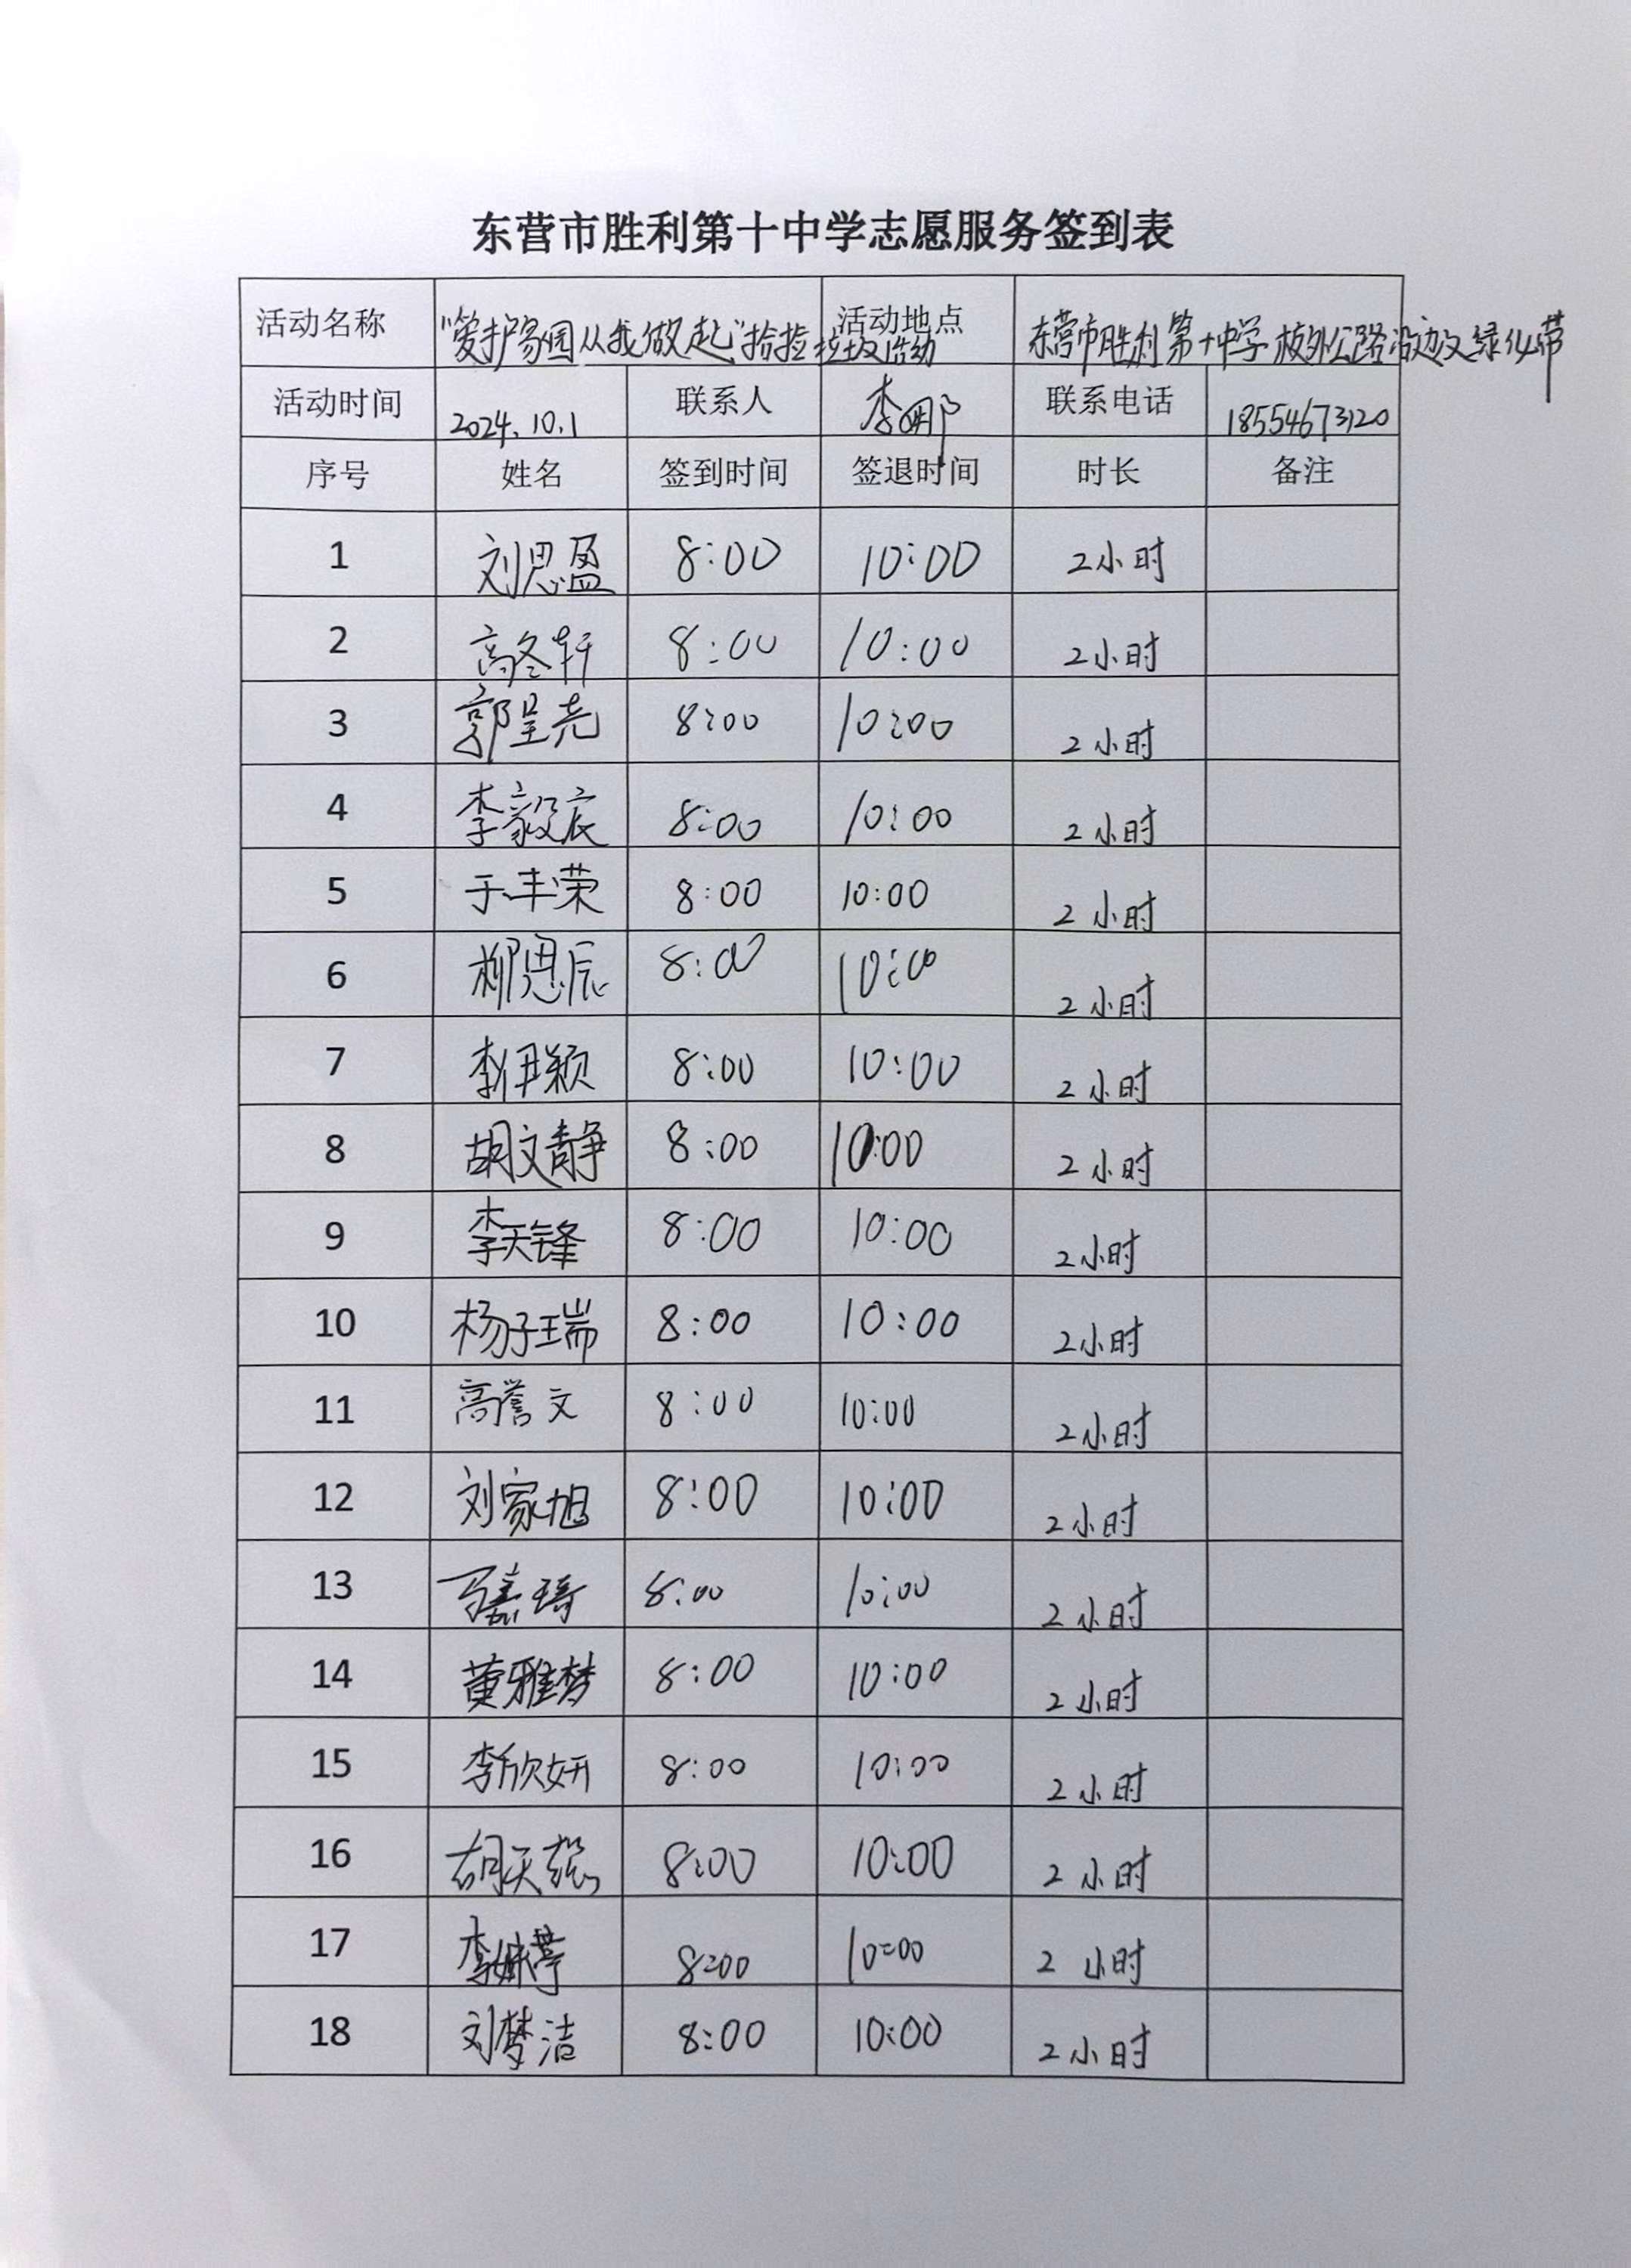 东营市胜利第十中学志愿服务签到表
活动名称 "爱护家园从我做起"捡拾垃圾活动 活动地点 东营市胜利第十中学校外公路沿边及绿化带
活动时间 2024.10.1 联系人 李 联系电话 18554673120
序号 姓名 签到时间 签退时间 时长 备注
1 刘思盈 8:00 10:00 2小时
2 高冬轩 8:00 10:00 2小时
3 郭呈尧 8:00 10:00 2小时
4 李毅宸 8:00 10:00 2小时
5 于丰荣 8:00 10:00 2小时
6 柳思辰 8:00 10:00 2小时
7 李伊颖 8:00 10:00 2小时
8 胡文静 8:00 10:00 2小时
9 李天锋 8:00 10:00 2小时
10 杨子瑞 8:00 10:00 2小时
11 高誉文 8:00 10:00 2小时
12 刘家旭 8:00 10:00 2小时
13 嘉琦 8:00 10:00 2小时
14 黄雅梦 8:00 10:00 2小时
15 李欣妍 8:00 10:00 2小时
16 胡天 8:00 10:00 2小时
17 李 8:00 10:00 2小时
18 刘梦洁 8:00 10:00 2小时